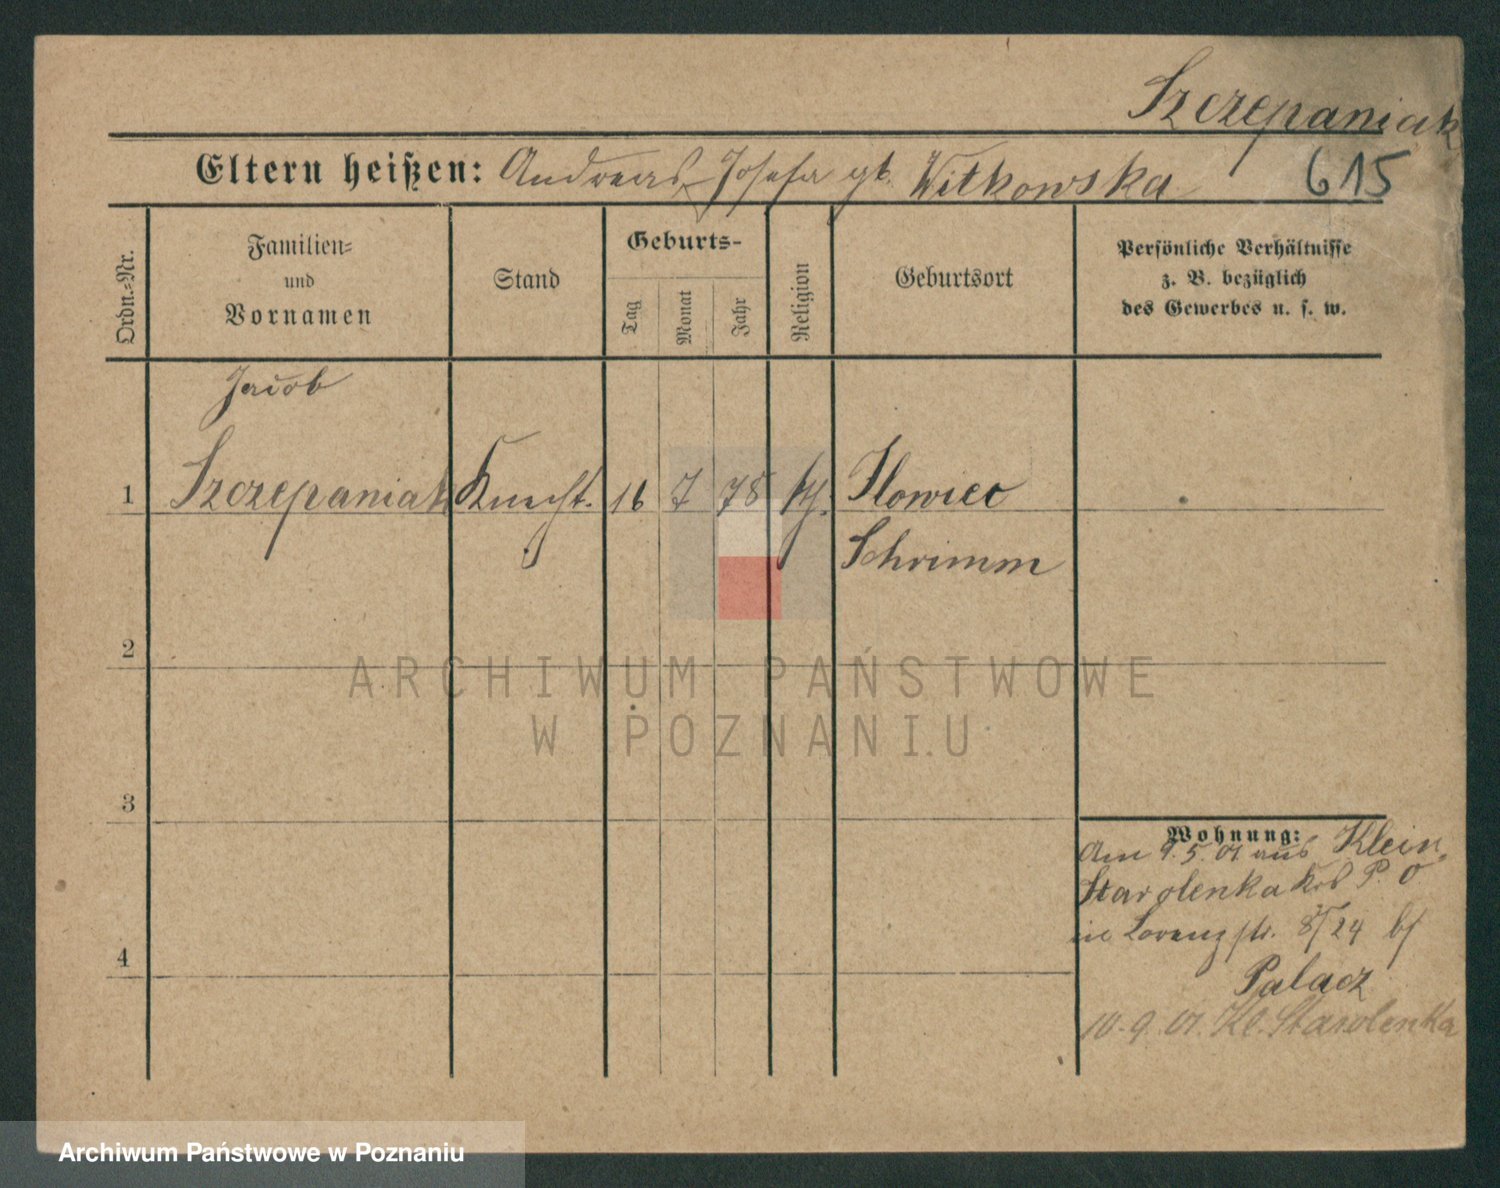 Szczepaniak
Eltern heißen: Andreas Josefa gb. Witkowska 615
Ordn.=Nr.
Familien=
und
Vornamen
Stand
Geburts-
Tag
Monat
Jahr
Religion
Geburtsort
Persönliche Verhältnisse
z. B. bezüglich
des Gewerbes u. s. w.
Jacob
1 Szczepaniak Knecht. 16 7 78 kth. Ilowiec
Schrimm
2
ARCHIWUM PAŃSTWOWE
W POZNANIU
3
Wohnung:
Am 9.5.01 aus Klein
Starolenka Krs P. O
in Lorenzstr. 24 bf
4
Palacz
10.9.01. Kl. Starolenka
Archiwum Państwowe w Poznaniu